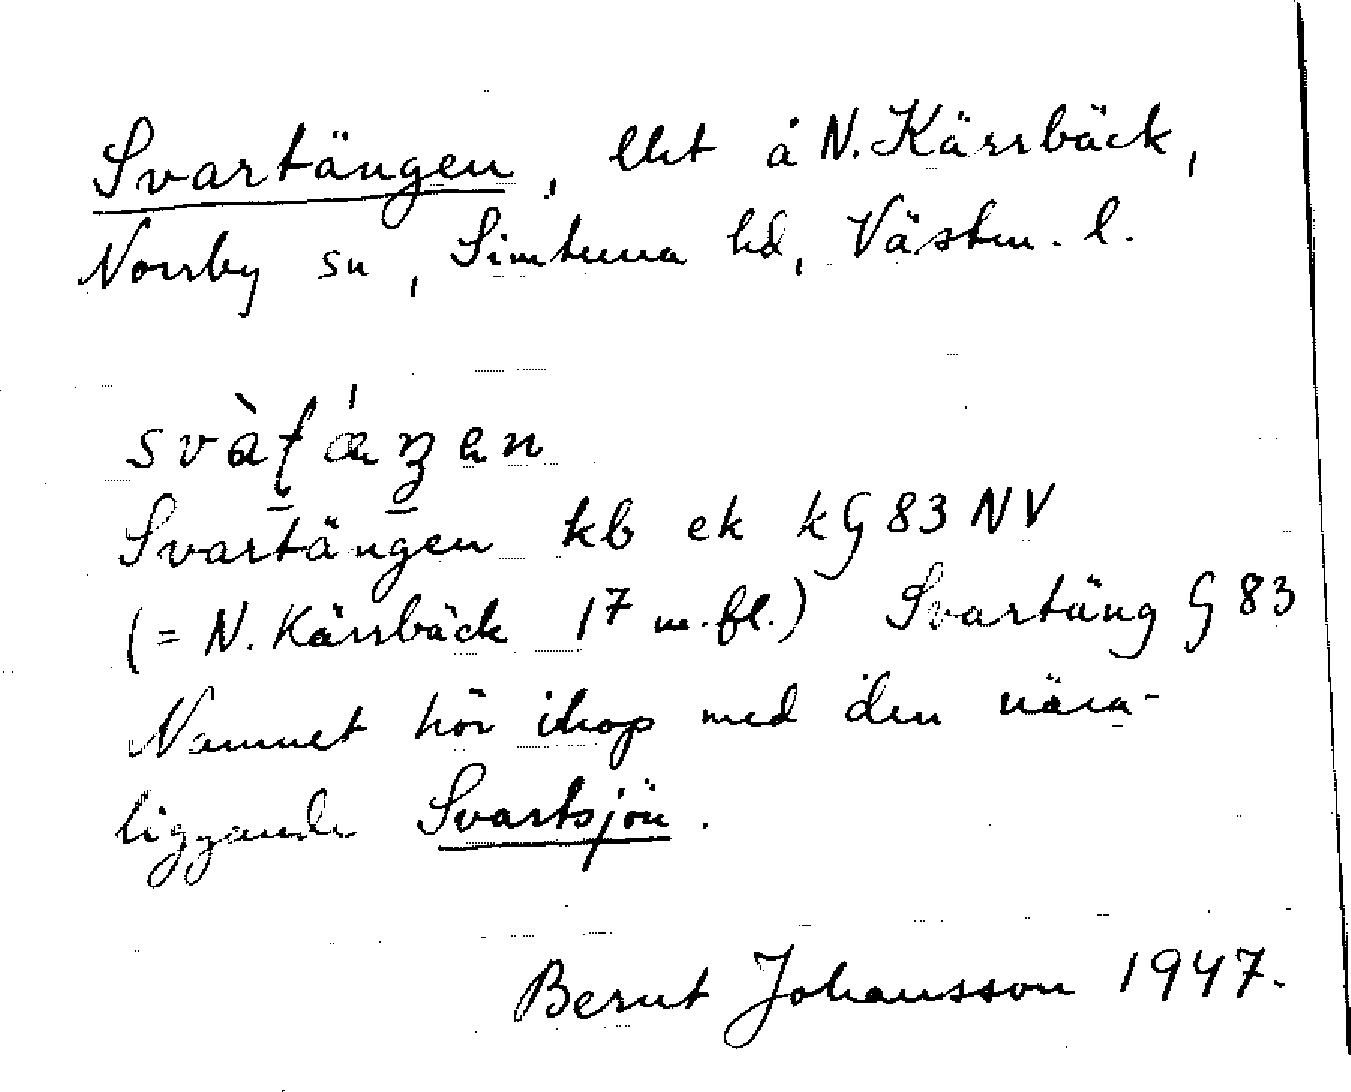 Svartängen, lht å N. Kärrbäck,
Norrby sn, Simtuna hd, Västm. l.
svàtǽŋen
Svartängen kb ek kG 83 NV
(= N. Kärrbäck 1⁷ m.fl.) Svartäng G 83
Namnet hör ihop med den nära-
liggande Svartsjön.
Bernt Johansson 1947.